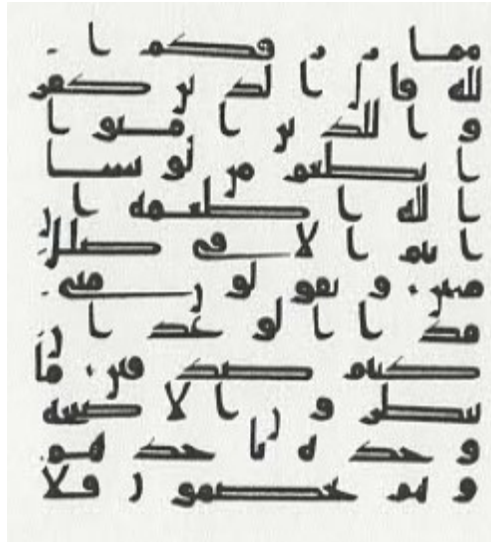 مما رزقكم ا
لله قال الذين كفر
وا للذين امنوا
انطعم من لو يشا
الله اطعمه ا
ن انتم الا في ضلل
مبين ويقولون متى
هذا الوعد ان
كنتم صدقين ما
ينظرون الا صيحه
وحده تاخذهم
وهم يخصمون فلا